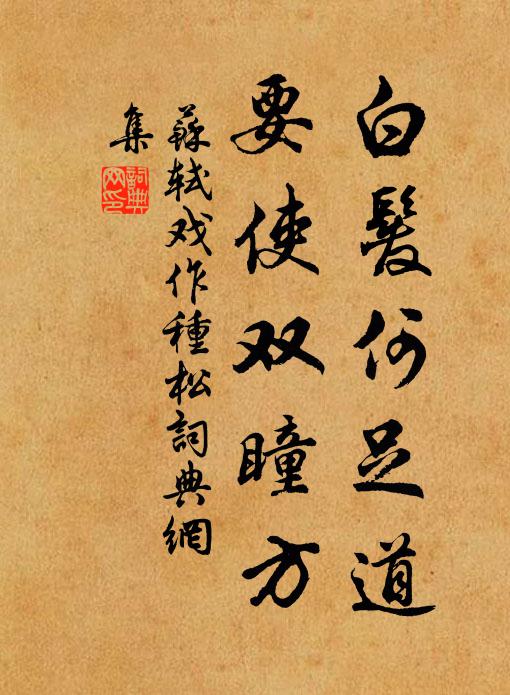 白髮何足道
要使双瞳方
蘇軾戏作種松詞典網
集
詞典
网印